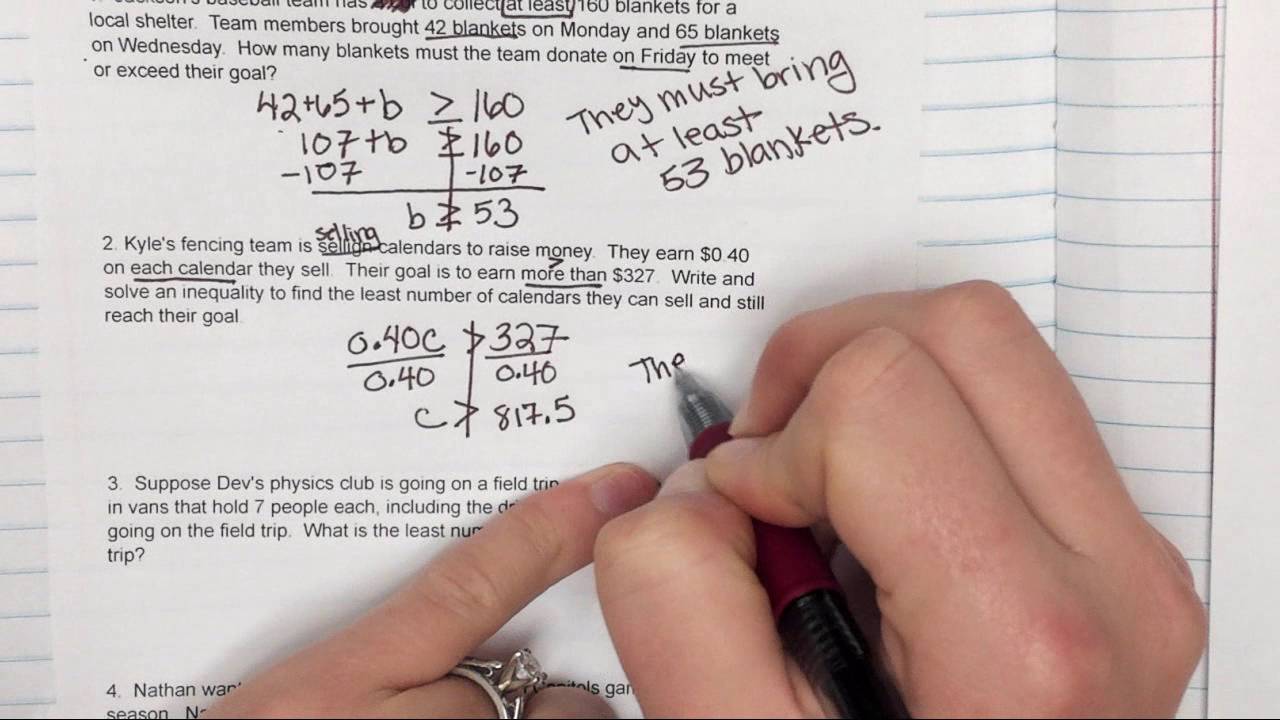 baseball team has to collect at least 160 blankets for a
local shelter. Team members brought 42 blankets on Monday and 65 blankets
on Wednesday. How many blankets must the team donate on Friday to meet
or exceed their goal?
42+65+b ≥ 160
107+b ≥ 160
-107 -107
b ≥ 53
They must bring
at least
53 blankets.
selling
2. Kyle's fencing team is sellign calendars to raise money. They earn $0.40
>
on each calendar they sell. Their goal is to earn more than $327. Write and
solve an inequality to find the least number of calendars they can sell and still
reach their goal
0.40c > 327
0.40 0.40
c > 817.5
The
3. Suppose Dev's physics club is going on a field trip
in vans that hold 7 people each, including the
going on the field trip. What is the least
trip?
4. Nathan
season.